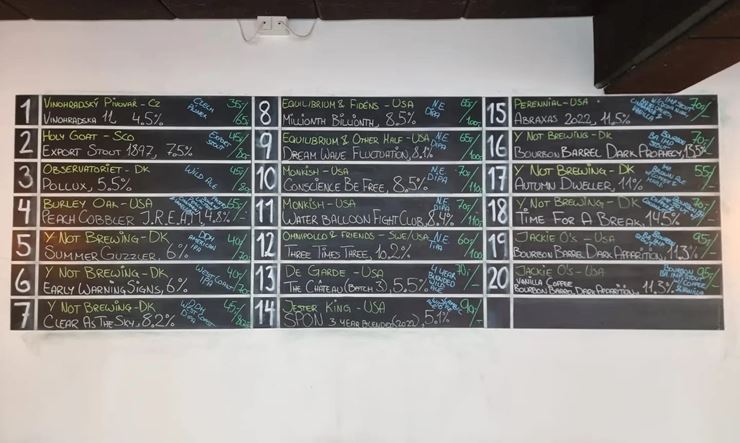 1 VINOHRADSKÝ PIVOVAR - CZ CZECH PILSNER 35/
VINOHRADSKA 11 4.5% 65,-
2 HOLY GOAT - SCO EXPORT STOUT 45/
EXPORT STOUT 1897, 7,5%
3 OBSERVATORIET - DK WILD ALE 45/
POLLUX, 5.5%
4 BURLEY OAK - USA 65/
PEACH COBBLER J.R.E.A.M, 4,8% -
5 Y NOT BREWING - DK DDH AMERICAN IPA 40/
SUMMER GUZZLER, 6%
6 Y NOT BREWING - DK WEST COAST IPA 40/
EARLY WARNING SIGNS, 6%
7 Y NOT BREWING - DK DDH WEST COAST DIPA 45/
CLEAR AS THE SKY, 8.2%
8 EQUILIBRIUM & FIDENS - USA N.E DIPA 65/
MILLIONTH BILLIONTH, 8,5% 100,-
9 EQUILIBRIUM & OTHER HALF - USA N.E DIPA 65/
DREAM WAVE FLUCTUATION, 8,1% 100,-
10 MONKISH - USA N.E DIPA 70/
CONSCIENCE BE FREE, 8,5% 110,-
11 MONKISH - USA N.E DIPA 70/
WATER BALLOON FIGHT CLUB, 8,4% 110,-
12 OMNIPOLLO & FRIENDS - SWE/USA N.E TIPA 60/
THREE TIMES THREE, 10,2% 100,-
13 DE GARDE - USA 4 YEAR BLENDED WILD ALE
THE GATEAU (BATCH 3), 5,5%
14 JESTER KING - USA 90/
SPON 3 YEAR BLEND (2022), 5,1% -
15 PERENNIAL - USA IMP STOUT 70/
ABRAXAS 2022, 11,5% -
16 Y NOT BREWING - DK BOURBON BA IMP STOUT 70/
BOURBON BARREL DARK PROPHECY, -
17 Y NOT BREWING - DK BROWN ALE 55/
AUTUMN DWELLER, 11% -
18 Y NOT BREWING - DK 70/
TIME FOR A BREAK, 14,5% -
19 JACKIE O'S - USA BOURBON BA IMP STOUT 95/
BOURBON BARREL DARK APPARITION, 11,3% -
20 JACKIE O'S - USA BOURBON BA IMP STOUT W/COFFEE & VANILLA 95/
VANILLA COFFEE
BOURBON BARREL DARK APPARITION, 11,3% -